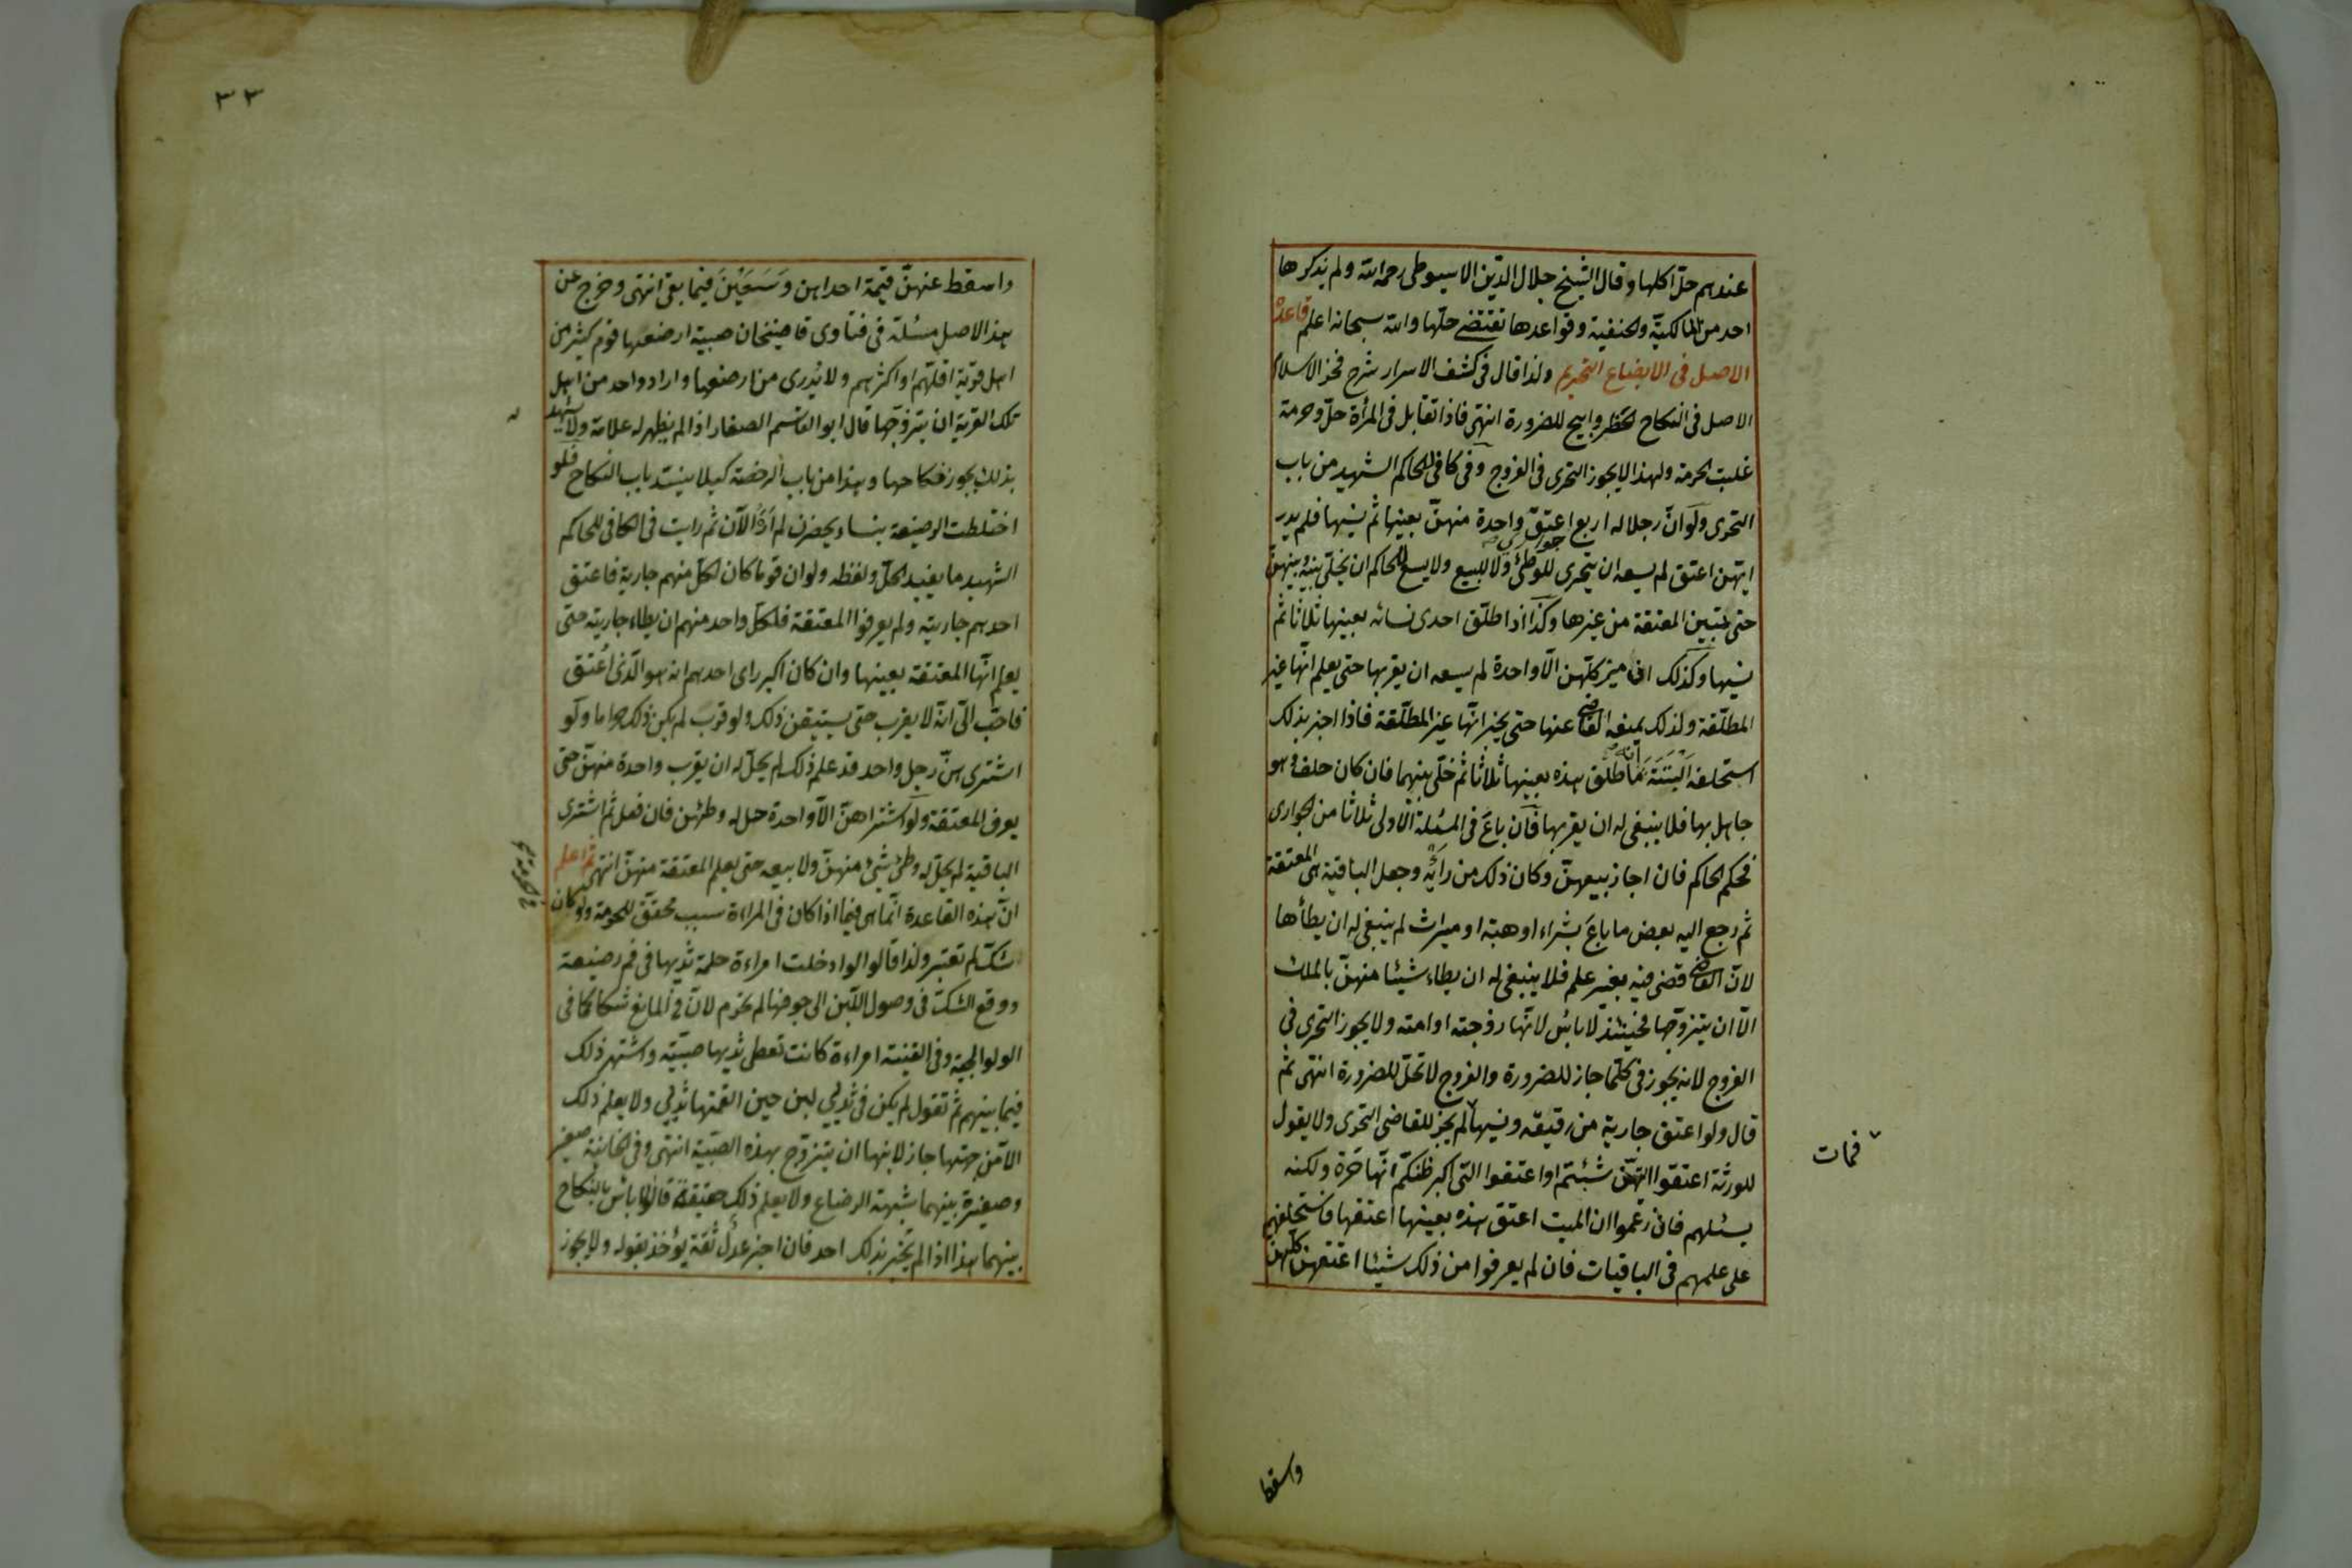 عندهم حلّ اكلها وقال الشيخ جلال الدّين الاسيوطى رحمه الله ولم يذكرها
احد من المالكيّة والحنفية وقواعدها تقتضے حلّها والله سبحانه اعلم قاعدة
الاصل فى الابضاع التحريم ولذا قال فى كشف الاسرار شرح فخر الاسلام
الاصل فى النكاح الحظر وابيح للضرورة انتهى فاذا تقابل فى المرأة حلّ وحرمة
غلبت الحرمة ولهذا لا يجوز التحرى فى الفروج وفى كافى الحاكم الشهيد من باب
التحرى ولو انّ رجلا له اربع جوارى اعتق واحدة منهنّ بعينها ثم نسيها فلم يدر
ايتهن اعتق لم يسعه ان يتحرى للوطئ ولا للبيع ولا يسع للحاكم ان يخلّى بينه وبينهنّ
حتى يتبين المعتقة من غيرها وكذا اذا طلّق احدى نسائه بعينها ثلاثا ثم
نسيها وكذلك ان ميز كلّهن الّا واحدة لم يسعه ان يقربها حتى يعلم انّها غير
المطلّقة ولذلك يمنعه القاضى عنها حتى يخبر انّها غير المطلّقة فاذا اخبر بذلك
استحلفه البتّة انه ما طلّق هذه بعينها ثلاثا ثم خلّى بينهما فان كان حلف وهو
جاهل بها فلا ينبغى له ان يقربها فان باع فى المسئلة الاولى ثلاثا من الجوارى
فحكم الحاكم فان اجاز بيعهنّ وكان ذلك من رأيه وجعل الباقية هى المعتقة
ثم رجع اليه بعض ما باع بشراء او هبة او ميراث لم ينبغى له ان يطأها
لانّ القاضى قضى فيه بغير علم فلا ينبغى له ان يطاء شيئا منهنّ بالملك
الّا ان يتزوّجها فحينئذ لا بأس لانّها زوجته او امته ولا يجوز التحرى فى
الفروج لانه يجوز فى كلّما جاز للضرورة والفروج لا تحلّ للضرورة انتهى ثم
قال ولو اعتق جارية من رقيقه ونسيها لم يجز للقاضى التحرى ولا يقول
فمات
للورثة اعتقوا ايّتهنّ شئتم او اعتقوا التى اكبر ظنكم انّها حرّة ولكنه
يسئلهم فان زعموا ان الميت اعتق هذه بعينها اعتقها واستحلفهم
على علمهم فى الباقيات فان لم يعرفوا من ذلك شيئا اعتقهنّ كلّهن
واسقط
٣٣
واسقط عنهنّ قيمة احداهن وسعين فيما بقى انتهى وخرج عن
هذا الاصل مسئلة فى فتاوى قاضيخان صبية ارضعها قوم كثير من
اهل قرية اقلّهم او اكثرهم ولا يُدرى من ارضعها واراد واحد من اهل
تلك القرية ان يتزوّجها قال ابو القاسم الصفار اذا لم يظهر له علامة ولا يشهد
بذلك يجوز نكاحها وهذا من باب الرخصة كيلا ينسدّ باب النكاح فلو
اختلطت الرضيعة بنساء يحصرن لم ارَ الآن ثم رايت فى الكافى للحاكم
الشهيد ما يفيد الحلّ ولفظه ولو ان قوما كان لكلّ منهم جارية فاعتق
احدهم جاريته ولم يعرفوا المعتقة فلكلّ واحد منهم ان يطاء جاريته حتى
يعلم انّها المعتقة بعينها وان كان اكبر راى احدهم انه هو الّذى اعتق
فاحبّ الىّ انّه لا يقرب حتى يستيقن ذلك ولو قرب لم يكن ذلك حراما ولو
اشترى هنّ رجل واحد قد علم ذلك لم يحلّ له ان يقرب واحدة منهنّ حتى
يعرف المعتقة ولو اشتراهنّ الّا واحدة حلّ له وطئهن فان فعل ثم اشترى
الباقية لم يحلّ له وطئ شيئ منهنّ ولا بيعه حتى يعلم المعتقة منهنّ انتهى ثم اعلم
انّ هذه القاعدة انّما هى فيما اذا كان فى المراءة سبب محقّق للحرمة ولو كان
شك لم تعتبر ولذا قالوا لو ادخلت امراءة حلمة ثديها فى فم رضيعة
ووقع الشكّ فى وصول اللّبن الى جوفها لم يحرم لانّ فى المانع شكا كما فى
الولوالجية وفى القنية امراءة كانت تعطى ثديها صبيّة واشتهر ذلك
فيما بينهم ثم تقول لم يكن فى ثديى لبن حين القمتها ثديى ولا يعلم ذلك
الّا من جهتها جاز لابنها ان يتزوّج بهذه الصبيّة انتهى وفى الخانية صغير
وصغيرة بينهما شبهة الرضاع ولا يعلم ذلك حقيقة قالوا لا بأس بالنكاح
بينهما هذا اذا لم يخبر بذلك احد فان اخبر عدل ثقة يؤخذ بقوله ولا يجوز